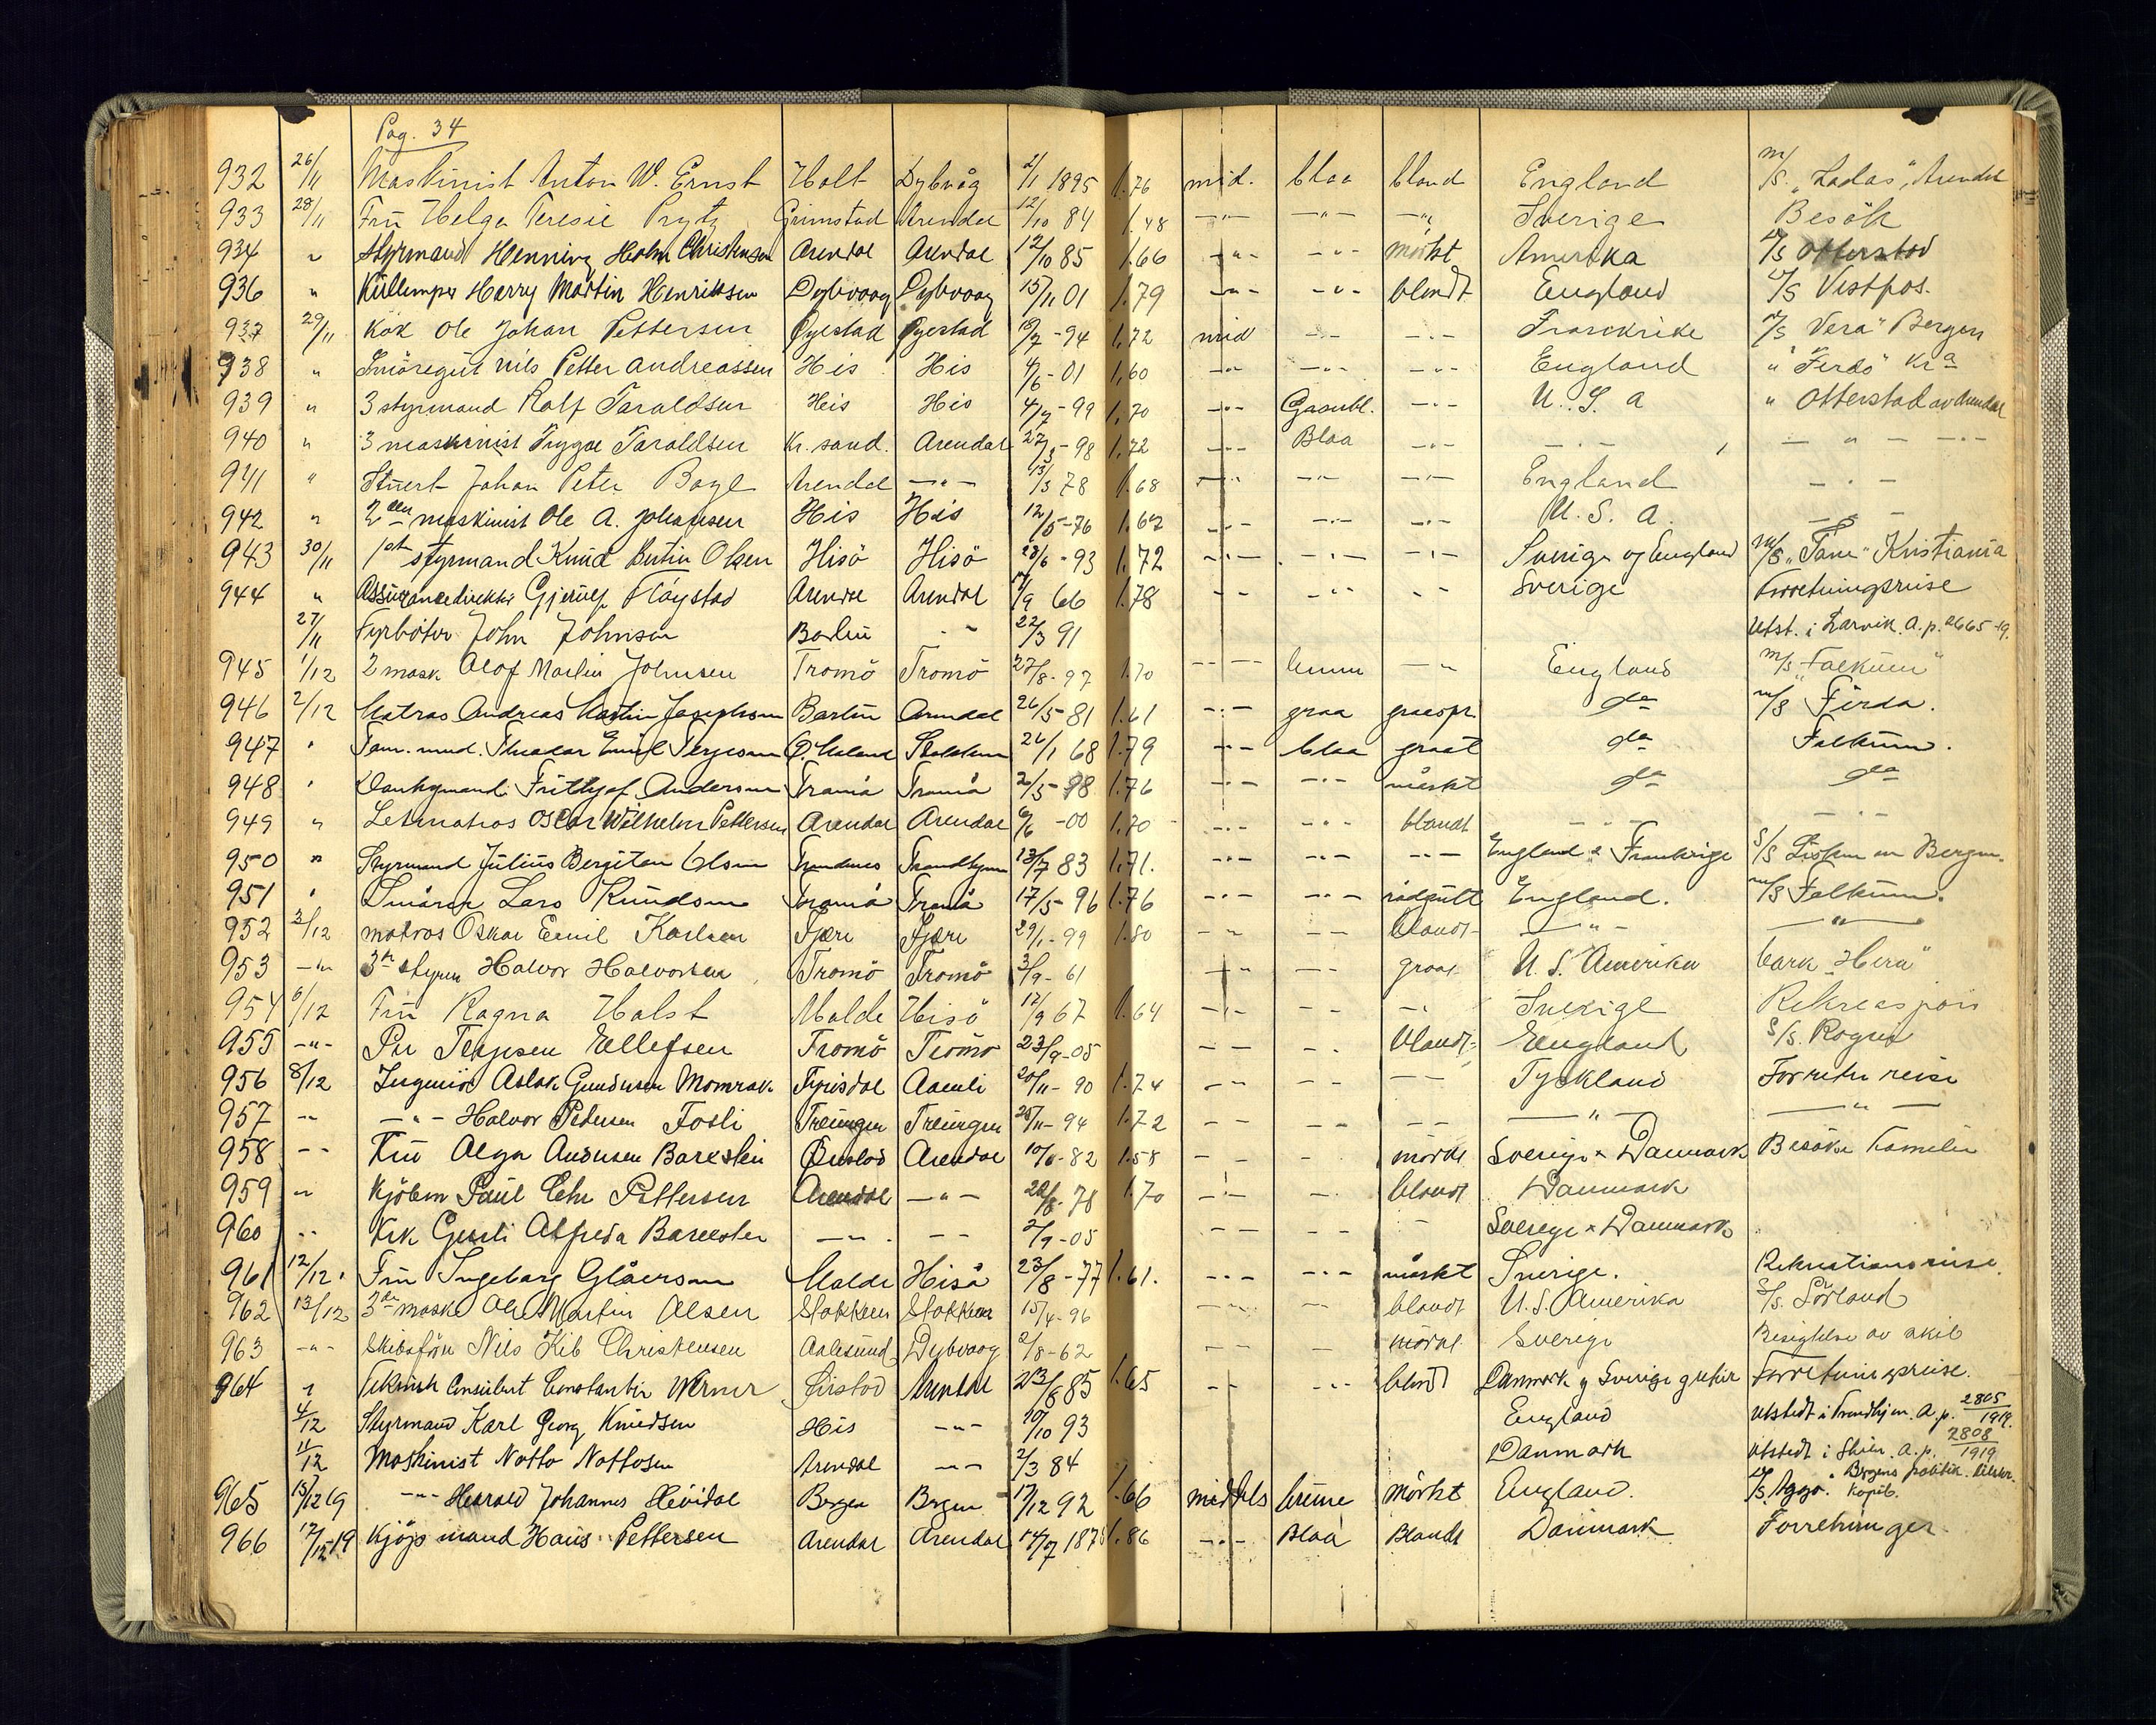 Pag. 34
932 26/11 Maskinist Anton W. Ernst Holt Dybvåg 2/1 1895 1.76 mid. blaa blond England m/s. "Ladas", Arendal
933 28/11 Frü Helga Teresie Prytz Grimstad Arendal 12/10 84 1.48 —"— —"— —"— Sverige Besök
934 " Styrmand Henning Holm Christensen Arendal Arendal 12/10 85 1.66 —"— —"— mörkt Amerika D/S Otterstad
936 " Harry Martin Henriksen Dybvaag Dybvaag 15/11 01 1.79 —"— —"— blondt England D/S Vestfos.
937 29/11 Kok Ole Johan Pettersen Öyestad Öyestad 18/7 - 94 1.72 mid —"— —"— Franckrike D/S "Vera" Bergen
938 " Smöregüt Nils Petter Andreassen His His 4/6 - 01 1,60 —"— —"— —"— England " "Ferdö" Kra
939 " 3 styrmand Rolf Taraldsen His His 4/7 - 99 1,70 —"— Graabl. —"— U. S. A " Otterstad av Arendal
940 " 3 maskinist Trygve Taraldsen Kr. sand. Arendal 27/3 - 98 1.72 —"— Blaa —"— —"— —"—
941 " Stuert Johan Peter Boye Arendal —"— 13/3 78 1.68 —"— —"— —"— England —"—
942 " 2den maskinist Ole A. Johansen His His 12/5 - 76 1.67 —"— —"— —"— U. S. A. —"—
943 30/11 1st styrmand Knüd Olsen Hisö Hisö 28/6 - 93 1.72 —"— —"— —"— Sverige og England M/S "Tane" Kristiania
944 " Assüranedirektör Gjerulf Fløystad Arendal Arendal 17/9 66 1.78 —"— —"— —"— Sverige Forretningsreise
27/11 Fyrböter John Johnsen Barbü —"— 22/3 91 Utst. i Larvik. A.p. 2665-19.
945 1/12 2 mask Olof Martin Johnsen Tromö Tromö 27/8 - 97 1.70 —"— brune —"— England m/s "Falkün"
946 2/12 Matros Andreas Martin Josephsen Barbü Arendal 26/5 - 81 1.61 —"— graa graaspr. do m/s Ferda.
947 " Töm. mnd. Theodor Emil Terjesen Stokken 26/1 68 1.79 —"— blaa graat do Falkün.
948 " Donkymand Frithjof Andersen Tromö Tromö 2/5 - 98 1.76 —"— —"— mörkt do do
949 " Letmatros Oscar Wilhelm Pettersen Arendal Arendal 6/6 - 00 1.70 —"— —"— blondt —"— —"—
950 " Styrmand Jülius Bergiton Olsen Trondhjem 13/7 83 1.71. —"— —"— —"— England & Frankrige S/S av Bergen.
951 " Smörer Lars Knüdsen Tromö Tromö 17/5 - 96 1.76 —"— —"— rödgült England. m/s Falkün.
952 3/12 matros Oskar Emil Karlsen Fjære Fjære 29/1 - 99 1.80 —"— —"— blondt —"— —"—
953 —"— 3die styrm Halvor Halvorsen Tromö Tromö 3/9 - 61 —"— —"— graat U. S. Amerika bark "Hera"
954 6/12 Frü Ragna Holst Molde Hisö 12/9 67 1.64 —"— —"— —"— Sverige Rekreasjon
955 —"— Per Terjesen Ellefsen Tromö Tromö 23/9 - 05 —"— —"— blondt England S/S. Rogen
956 8/12 Ingeniör Aslak Gundersen Momrak Fyrisdal Aamli 20/11 - 90 1.74 —"— —"— —"— Tyskland Forretn reise
957 —"— —"— Halvor Pedersen Fosli Treungen Treungen 25/11 - 94 1.72 —"— —"— —"— —"— —"—
958 —"— Frü Olga Andersen Bakstein Arendal 10/6 - 82 1.58 —"— —"— mörkt Sverige & Danmark Besöke Familie
959 —"— Kjöbm Paül Chr Pettersen Arendal —"— 28/8 - 78 1.70 —"— —"— blondt Danmark
960 —"— Frk Gerti Alfreda —"— —"— 2/9 - 05 —"— —"— —"— Sverige & Danmark
961 12/12. Frü Ingeborg Glåersen Molde Hisö 23/8 - 77 1.61. —"— —"— mörkt Sverige. Rekreationsreise.
962 13/12 3die mask. Ole Martin Olsen Stokken Stokken 15/4 - 96 —"— —"— blondt U. S. Amerika S/S. Sörland
963 —"— Skibsför. Nils Kib Christensen Aalesund Dybvaag 2/8 - 62 —"— —"— mörkt Sverige Besigtelse av skib
964 " Teknisk Consulent Constantin Werner Arendal 23/8 85 1.65 —"— —"— blondt Danmark og Sverige Forretningsreise.
4/12 Styrmand Karl Georg Knüdsen His —"— 10/10 93 England Utstedt i Trondhjem. A.p. 2805/1919.
11/12 Maskinist Notto Nottosen Arendal —"— 2/3 84 Danmark Utstedt i Skien. A.p. 2808/1919
965 15/12 19 —"— Harald Johannes Hevidal Bergen Bergen 17/12 92 1.66 middels brune mörkt England. D/S. Aggo. Bergens politik. kopib.
966 17/12 19 Kjöpmand Hans Pettersen Arendal Arendal 14/7 1878 1.86 —"— Blaa Blondt Danmark Forretninger